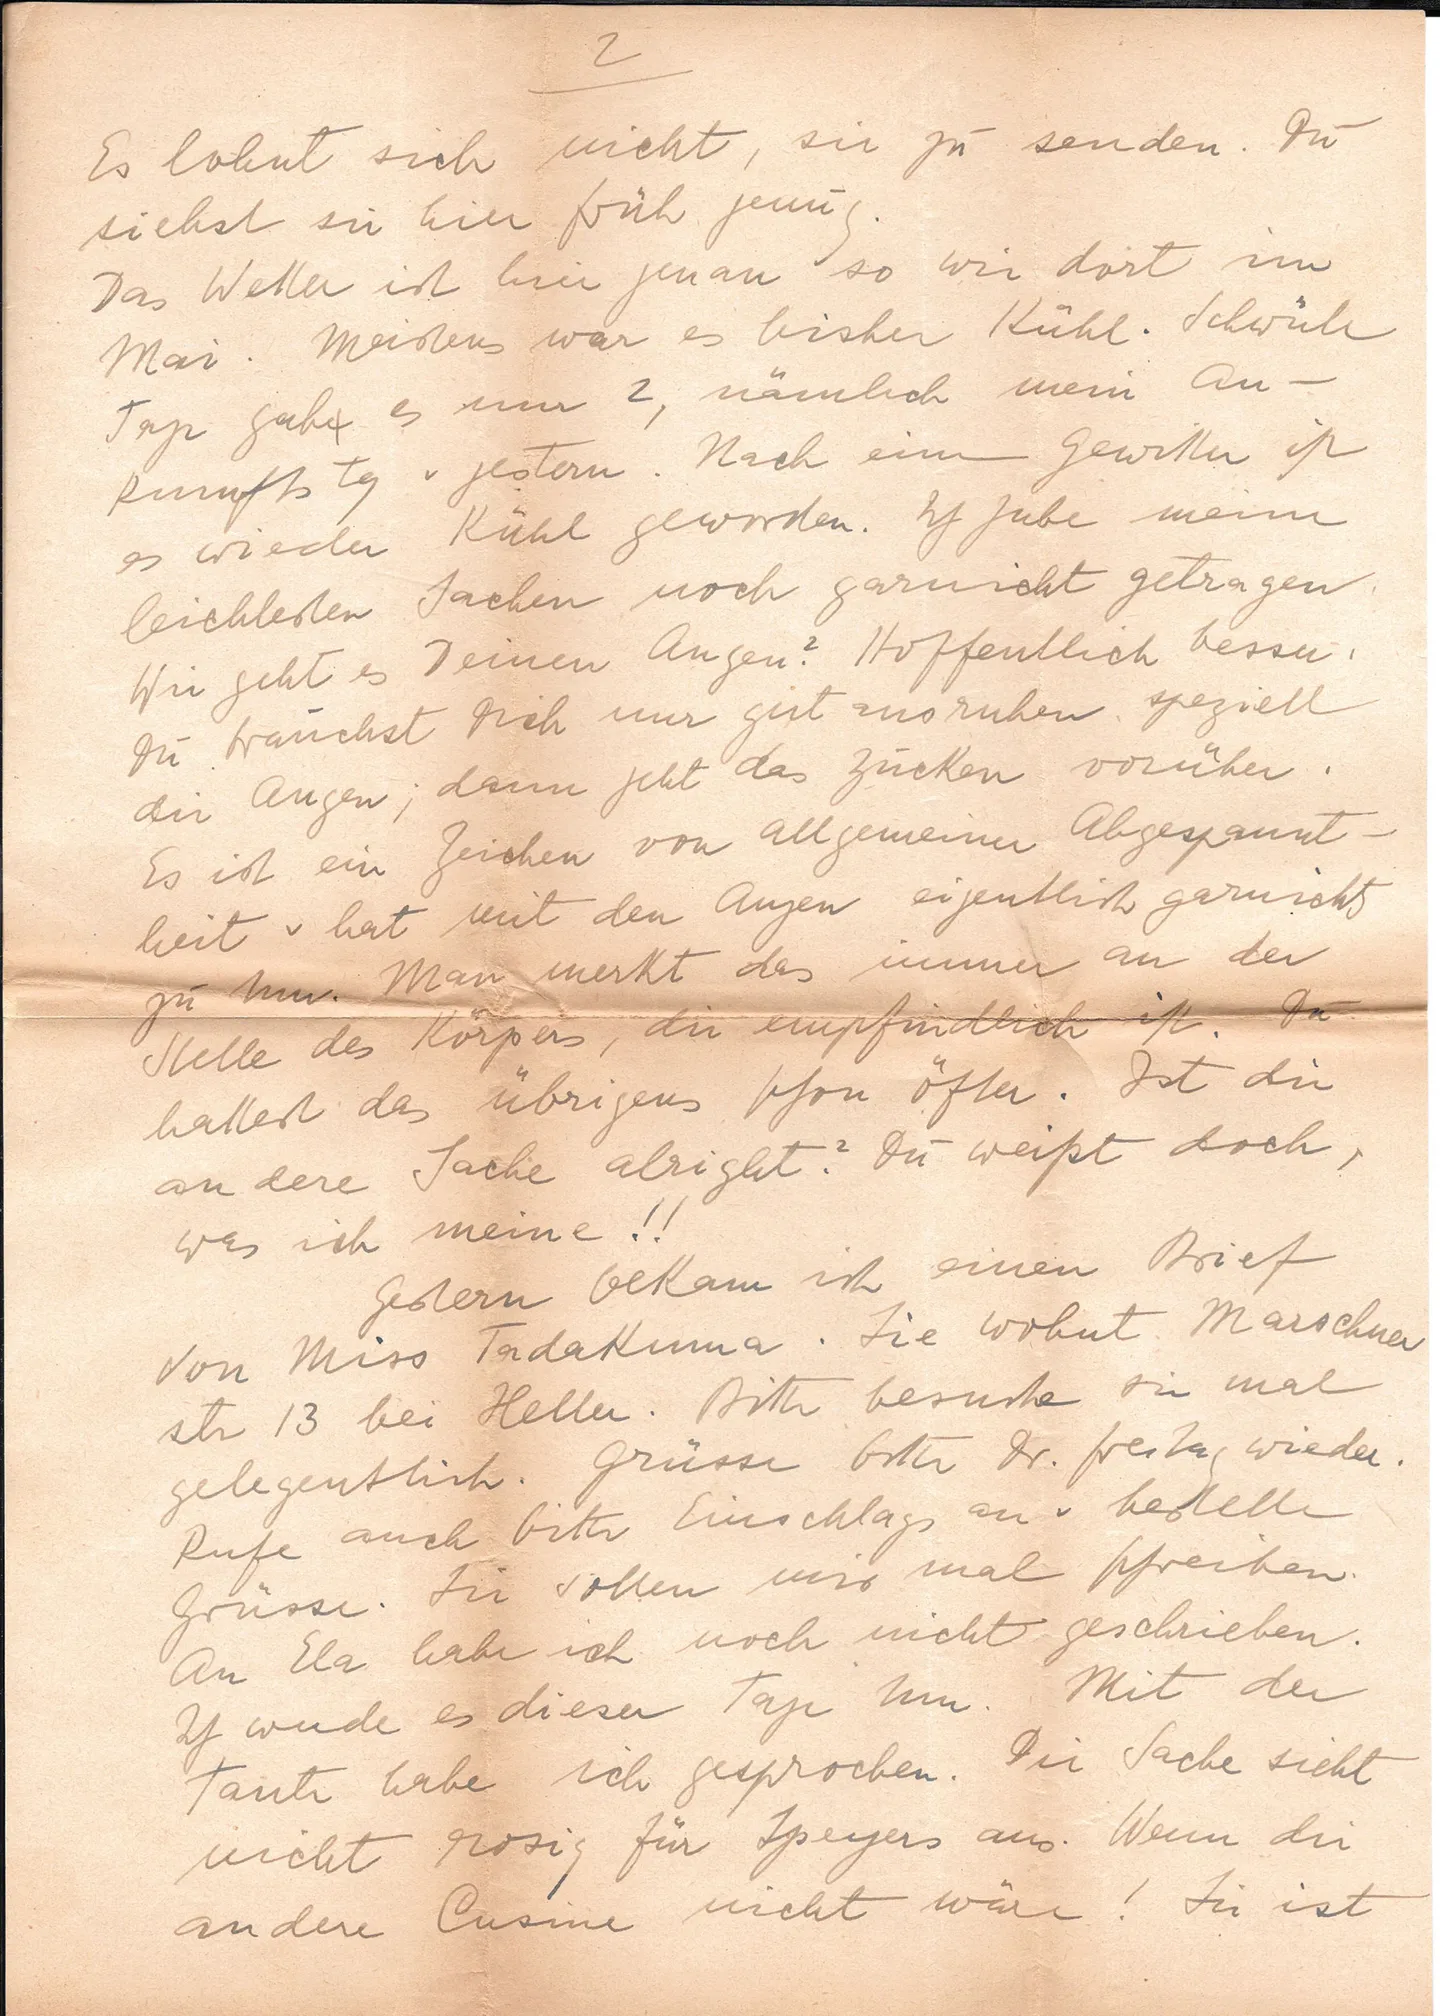 2
Es lohnt sich nicht, sie zu senden. Du
siehst sie hier früh genug.
Das Wetter ist hier genau so wie dort im
Mai. Meistens war es bisher Kühl. Schwüle
Tage gabe es nur 2, nämlich mein An-
kunftstg u gestern. Nach einem Gewitter ist
es wieder Kühl geworden. Ich habe meine
leichtesten Sachen noch garnicht getragen.
Wie geht es Deinen Augen? Hoffentlich besser.
Du brauchst Dich nur gut ausruhen speziell
die Augen; dann geht das Zucken vorüber.
Es ist ein Zeichen von allgemeiner Abgespannt-
heit u hat mit den Augen eigentlich garnichts
zu tun. Man merkt das immer an der
Stelle des Körpers, die empfindlich ist. Du
hattest das übrigens schon öfter. Ist die
andere Sache alright? Du weißt doch,
was ich meine!!
Gestern bekam ich einen Brief
von Miss Tadakuma. Sie wohnt Marschner
str 13 bei Heller. Bitte besuche sie mal
gelegentlich. Grüsse bitte Dr. Freitag wieder.
Rufe auch bitte Einschlags an u bestelle
Grüsse. Sie sollen mir mal schreiben.
An Ela habe ich noch nicht geschrieben.
Ich werde es dieser Tage tun. Mit der
Tante habe ich gesprochen. Die Sache sieht
nicht rosig für Speyers aus. Wenn die
andere Cusine nicht wäre! Sie ist